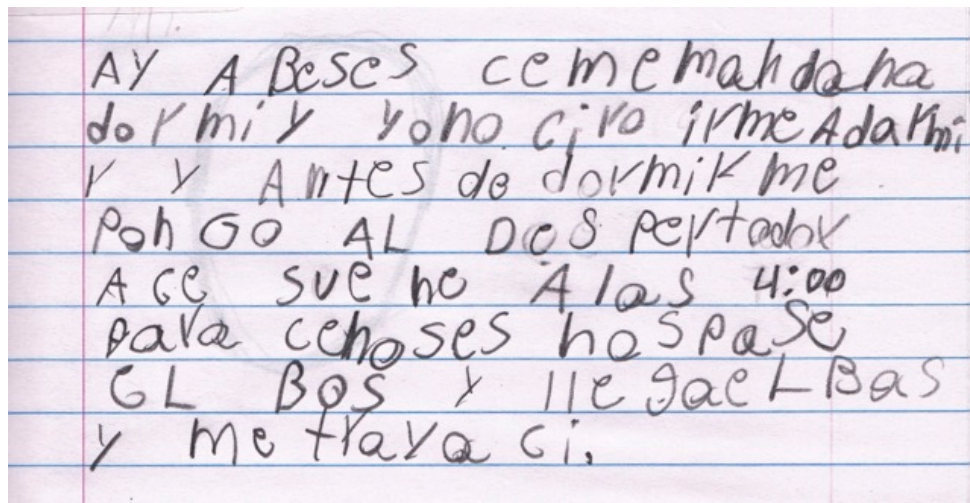 AY A BeseS ce me mahda ha
dormiy yo no ciro irme A darmi
r y Antes de dormir me
PohGO AL Des pertador
A Ce sue ho A las 4:00
para cehoses hos pase
GL BOS y llegaeL Bas
y me traya ci.